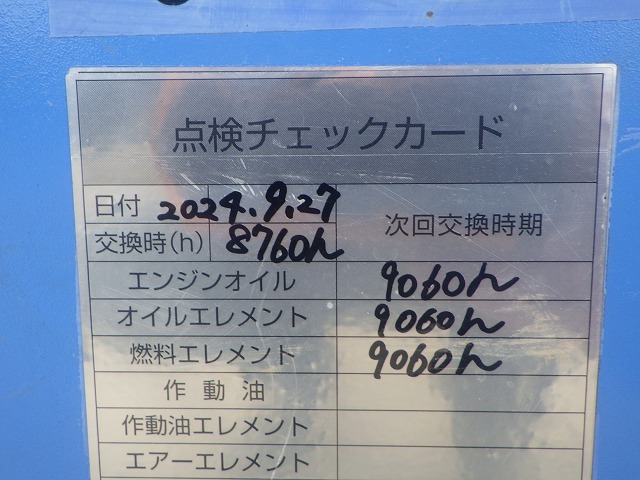 点検チェックカード
日付 2024.9.27
次回交換時期
交換時(h) 8760h
エンジンオイル 9060h
オイルエレメント 9060h
燃料エレメント 9060h
作動油
作動油エレメント
エアーエレメント